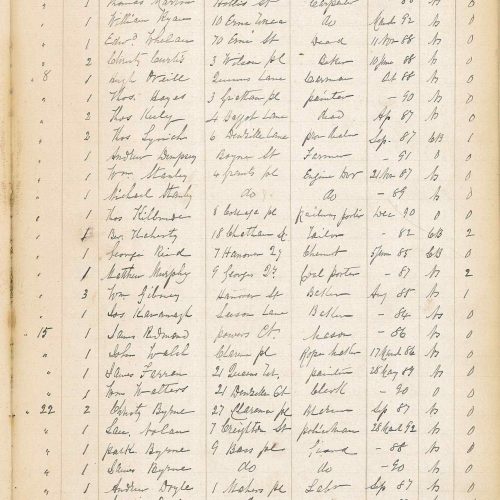 " 1 Thomas Warren Hollis St Carpenter
" 1 William Ryan 10 Erne Do March 92 No 0
" 1 Edwd Whelan 70 Erne St Dead 11 Nov 88 No 0
" 2 Christy Curtis 3 Wilson pl Baker 10 June 88 No 0
" 8 1 Hugh O'Neill Queens Lane Carman Oct 88 No 0
" 1 Thos. Hayes 3 Grattan pl painter - 90 No 0
" 2 Thos Kiely 4 Baggot Lane Dead Ap 87 No 0
" 2 Thos Lynch 6 Denzille Lane Sep. 87 CB 1
" 1 Andrew Dempsey Boyne St Farmer - 91 0 0
" 1 Wm Stanley 4 pl Engine 21 Nov 87 No 0
" 1 Michael Stanley do do - 89 No 0
" 1 Thos 8 pl Railway porter Dec 90 0 0
" 1 Flaherty 18 Chatham St Tailor - 82 CB 2
" 1 George Reid 7 Hanover Qy Chemist 85 CB 0
" 1 Matthew Murphy 9 Georges Qy Coal porter - 87 No 2
" 3 Wm Gibney Hanover St Baker Aug 85 No 1
" 1 Jos Kavanagh Leeson Lane Baker - 84 No 0
" 15 1 James Redmond powers Ct. Mason - 86 No 0
" 1 John Walsh Clare pl Rope maker 17 March 86 No 0
" 1 James Farran 21 Queens St. painter 28 May 89 No 0
" 1 Wm Watters 21 Denzille St Clerk - 90 0 0
" 22 2 Christy Byrne 27 Clarence pl Sp 87 No 0
" 1 Nolan 7 Creighton St policeman 28 March 92 No 0
" 1 patk Byrne 9 Bass pl Guard - 88 No 0
" 1 James Byrne do do - 90 No 0
" 1 Andrew Doyle 1 pl Labr Sp 87 No 0